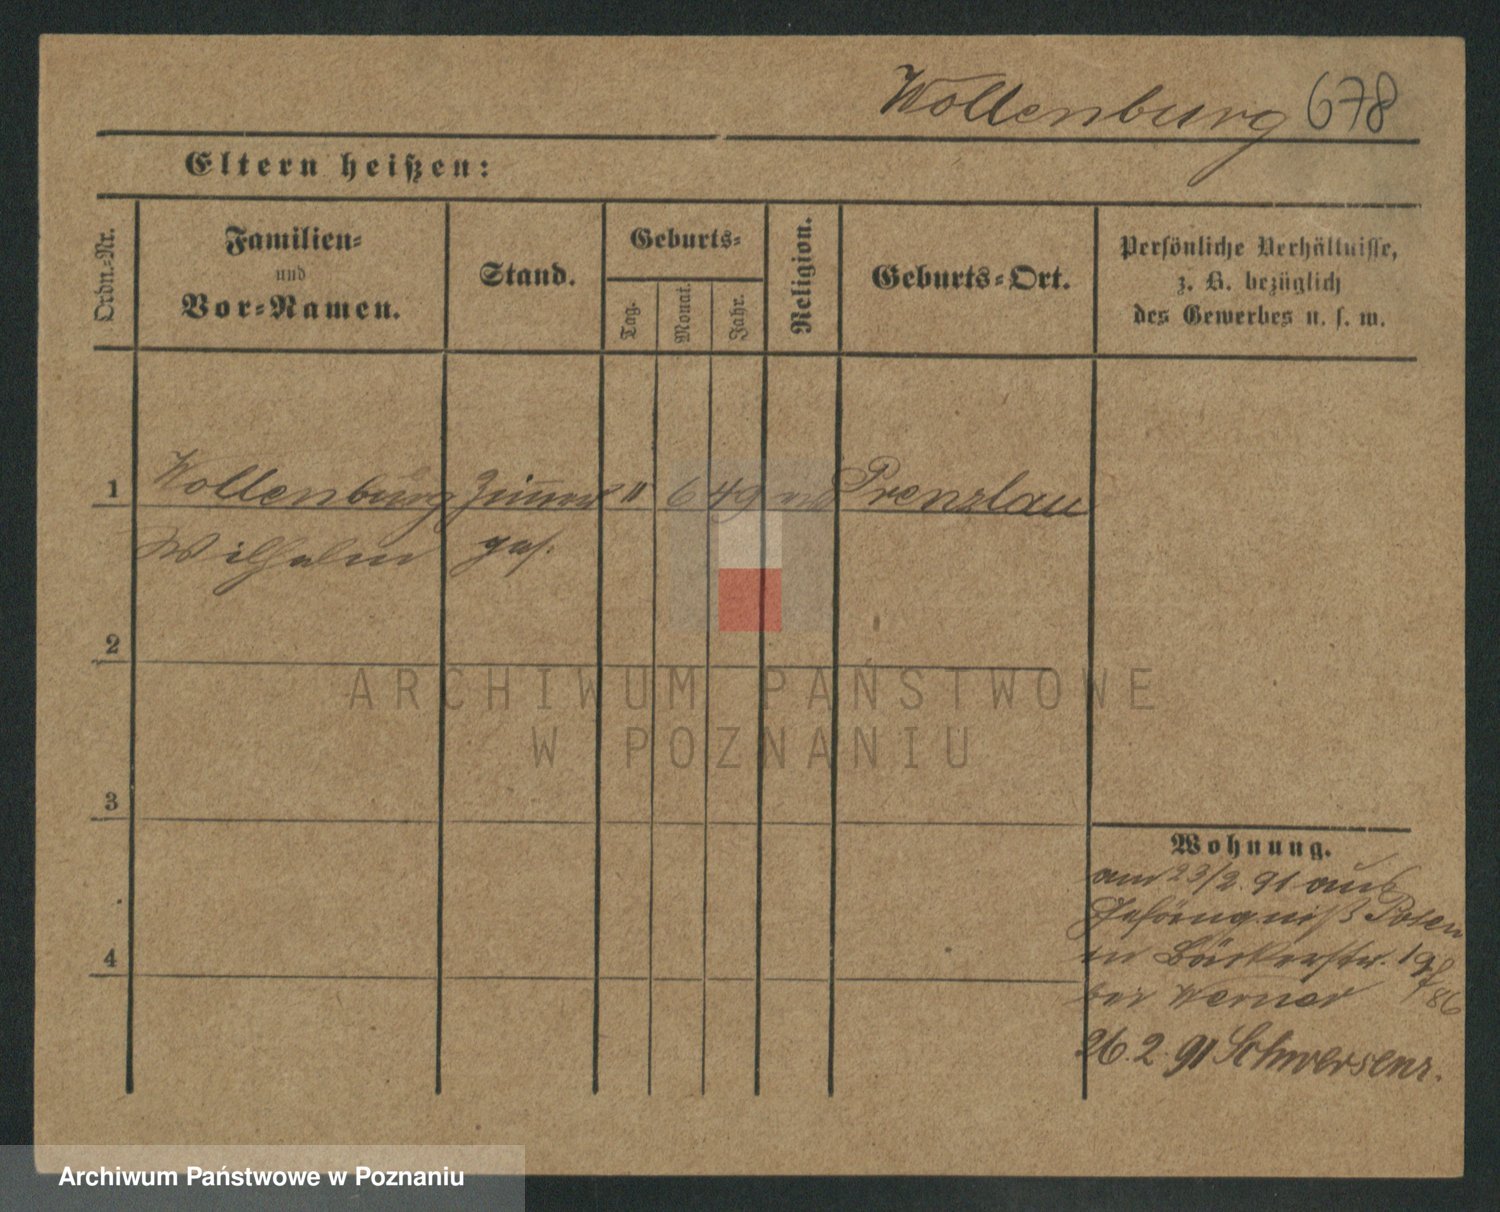 Wollenburg 678
Eltern heißen:
Ordn.-Nr.
Familien-
und
Vor-Namen.
Stand.
Geburts-
Tag.
Monat.
Jahr.
Religion.
Geburts-Ort.
Persönliche Verhältnisse,
z. B. bezüglich
des Gewerbes u. s. w.
1 Wollenburg Zimmer 11 6 49 Prenzlau
Wilhelm ges.
2
3
4
Wohnung.
am 23/2. 91 aus
Gefängniß Posen
in Bäckerstr. 19
bei Werner 86
26. 2. 91 Schwersenz.
ARCHIWUM PAŃSTWOWE
W POZNANIU
Archiwum Państwowe w Poznaniu